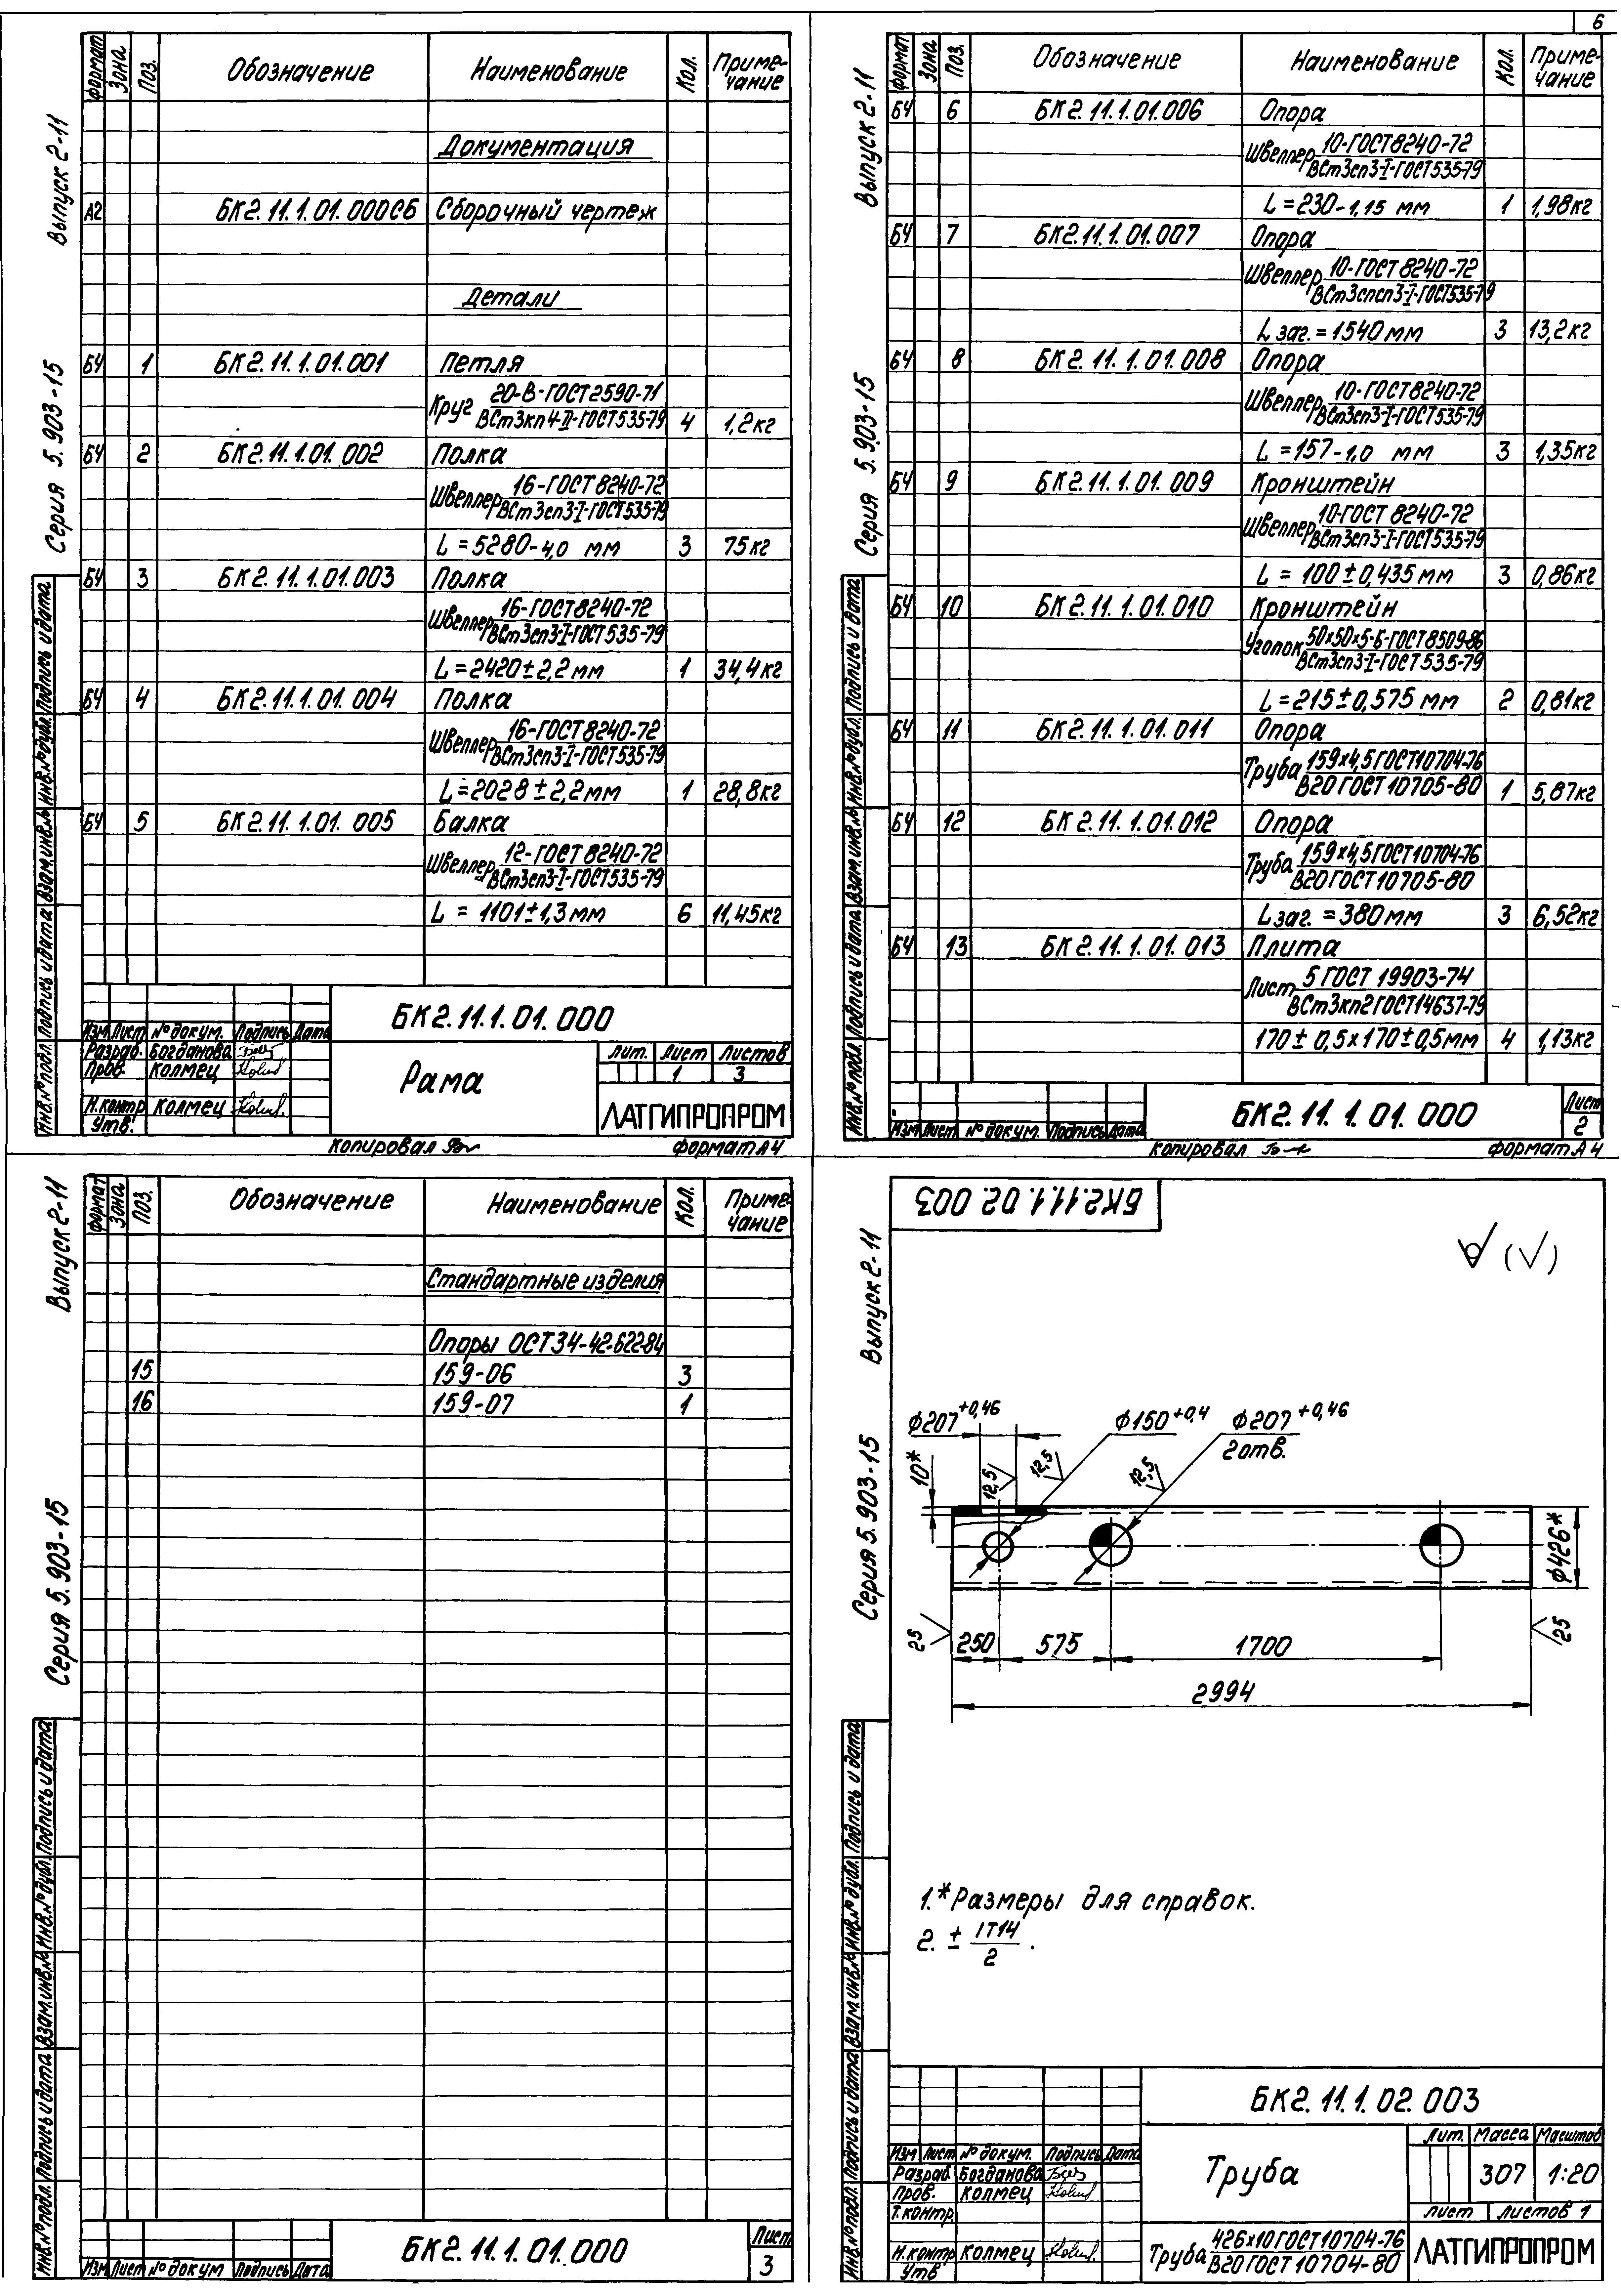 6
Выпуск 2-11
Серия 5.903-15
Формат
Зона
Поз.
Обозначение
Наименование
Кол.
Приме-
чание
Документация
А2 БК2.11.1.01.000СБ Сборочный чертеж
Детали
БЧ 1 БК2.11.1.01.001 Петля
Круг 20-В-ГОСТ2590-71
ВСт3кп4-II-ГОСТ535-79 4 1,2кг
БЧ 2 БК2.11.1.01.002 Полка
Швеллер 16-ГОСТ8240-72
ВСт3сп3-I-ГОСТ535-79
L=5280-4,0 мм 3 75кг
БЧ 3 БК2.11.1.01.003 Полка
Швеллер 16-ГОСТ8240-72
ВСт3сп3-I-ГОСТ535-79
L=2420±2,2мм 1 34,4кг
БЧ 4 БК2.11.1.01.004 Полка
Швеллер 16-ГОСТ8240-72
ВСт3сп3-I-ГОСТ535-79
L=2028±2,2мм 1 28,8кг
БЧ 5 БК2.11.1.01.005 Балка
Швеллер 12-ГОСТ8240-72
ВСт3сп3-I-ГОСТ535-79
L = 1101±1,3мм 6 11,45кг
Инв.№подл. Подпись и дата Взам.инв.№ Инв.№дубл. Подпись и дата
БК2.11.1.01.000
Изм Лист №докум. Подпись Дата
Разраб. Богданова
Пров. Колмец
Н.контр Колмец
Утв.
Рама
Лит. Лист Листов
1 3
ЛАТГИПРОПРОМ
Копировал
Формат А4
Выпуск 2-11
Серия 5.903-15
Формат
Зона
Поз.
Обозначение
Наименование
Кол.
Приме-
чание
БЧ 6 БК2.11.1.01.006 Опора
Швеллер 10-ГОСТ8240-72
ВСт3сп3-I-ГОСТ535-79
L=230-1,15 мм 1 1,98кг
БЧ 7 БК2.11.1.01.007 Опора
Швеллер 10-ГОСТ8240-72
ВСт3спсп3-I-ГОСТ535-79
L заг.=1540мм 3 13,2кг
БЧ 8 БК2.11.1.01.008 Опора
Швеллер 10-ГОСТ8240-72
ВСт3сп3-I-ГОСТ535-79
L=157-1,0 мм 3 1,35кг
БЧ 9 БК2.11.1.01.009 Кронштейн
Швеллер 10-ГОСТ 8240-72
ВСт3сп3-I-ГОСТ535-79
L = 100±0,435мм 3 0,86кг
БЧ 10 БК2.11.1.01.010 Кронштейн
Уголок 50х50х5-Б-ГОСТ8509-86
ВСт3сп3-I-ГОСТ535-79
L=215±0,575 мм 2 0,81кг
БЧ 11 БК2.11.1.01.011 Опора
Труба 159х4,5ГОСТ10704-76
В20ГОСТ10705-80 1 5,87кг
БЧ 12 БК2.11.1.01.012 Опора
Труба 159х4,5ГОСТ10704-76
В20ГОСТ10705-80
Lзаг. =380мм 3 6,52кг
БЧ 13 БК2.11.1.01.013 Плита
Лист 5 ГОСТ 19903-74
ВСт3кп2ГОСТ14637-79
170±0,5х170±0,5мм 4 1,13кг
Инв.№подл. Подпись и дата Взам.инв.№ Инв.№дубл. Подпись и дата
Изм Лист №докум. Подпись Дата
БК2.11.1.01.000
Лист
2
Копировал
Формат А4
Выпуск 2-11
Серия 5.903-15
Формат
Зона
Поз.
Обозначение
Наименование
Кол.
Приме-
чание
Стандартные изделия
Опоры ОСТ34-42-622-84
15 159-06 3
16 159-07 1
Инв.№подл. Подпись и дата Взам.инв.№ Инв.№дубл. Подпись и дата
Изм Лист №докум Подпись Дата
БК2.11.1.01.000
Лист
3
БК2.11.1.02.003
Выпуск 2-11
Серия 5.903-15
(√)
ф207+0,46
ф150+0,4
ф207+0,46
2отв.
10*
12,5
12,5
12,5
ф426*
25
250
575
1700
25
2994
1.*Размеры для справок.
2. ± IT14
2 .
Инв.№подл. Подпись и дата Взам.инв.№ Инв.№дубл. Подпись и дата
БК2.11.1.02.003
Изм Лист №докум. Подпись Дата
Разраб. Богданова
Пров. Колмец
Т.контр.
Н.контр Колмец
Утв
Труба
Лит. Масса Масштаб
307 1:20
Лист Листов 1
Труба 426х10ГОСТ10704-76
В20ГОСТ 10704-80
ЛАТГИПРОПРОМ